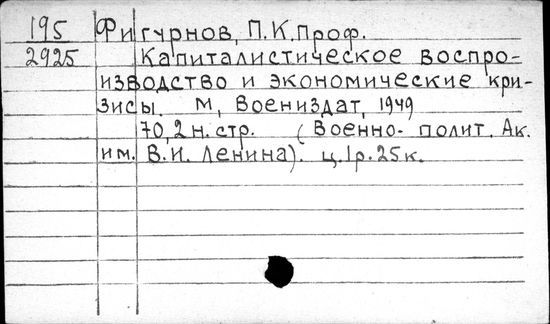 195 Фигурнов, П.К. Проф.
2925 Капиталистическое воспро-
изводство и экономические кри-
зисы. М, Воениздат, 1949
70,2 н. стр. (Военно- полит. Ак.
им. В.И. Ленина). ц. 1р. 25к.